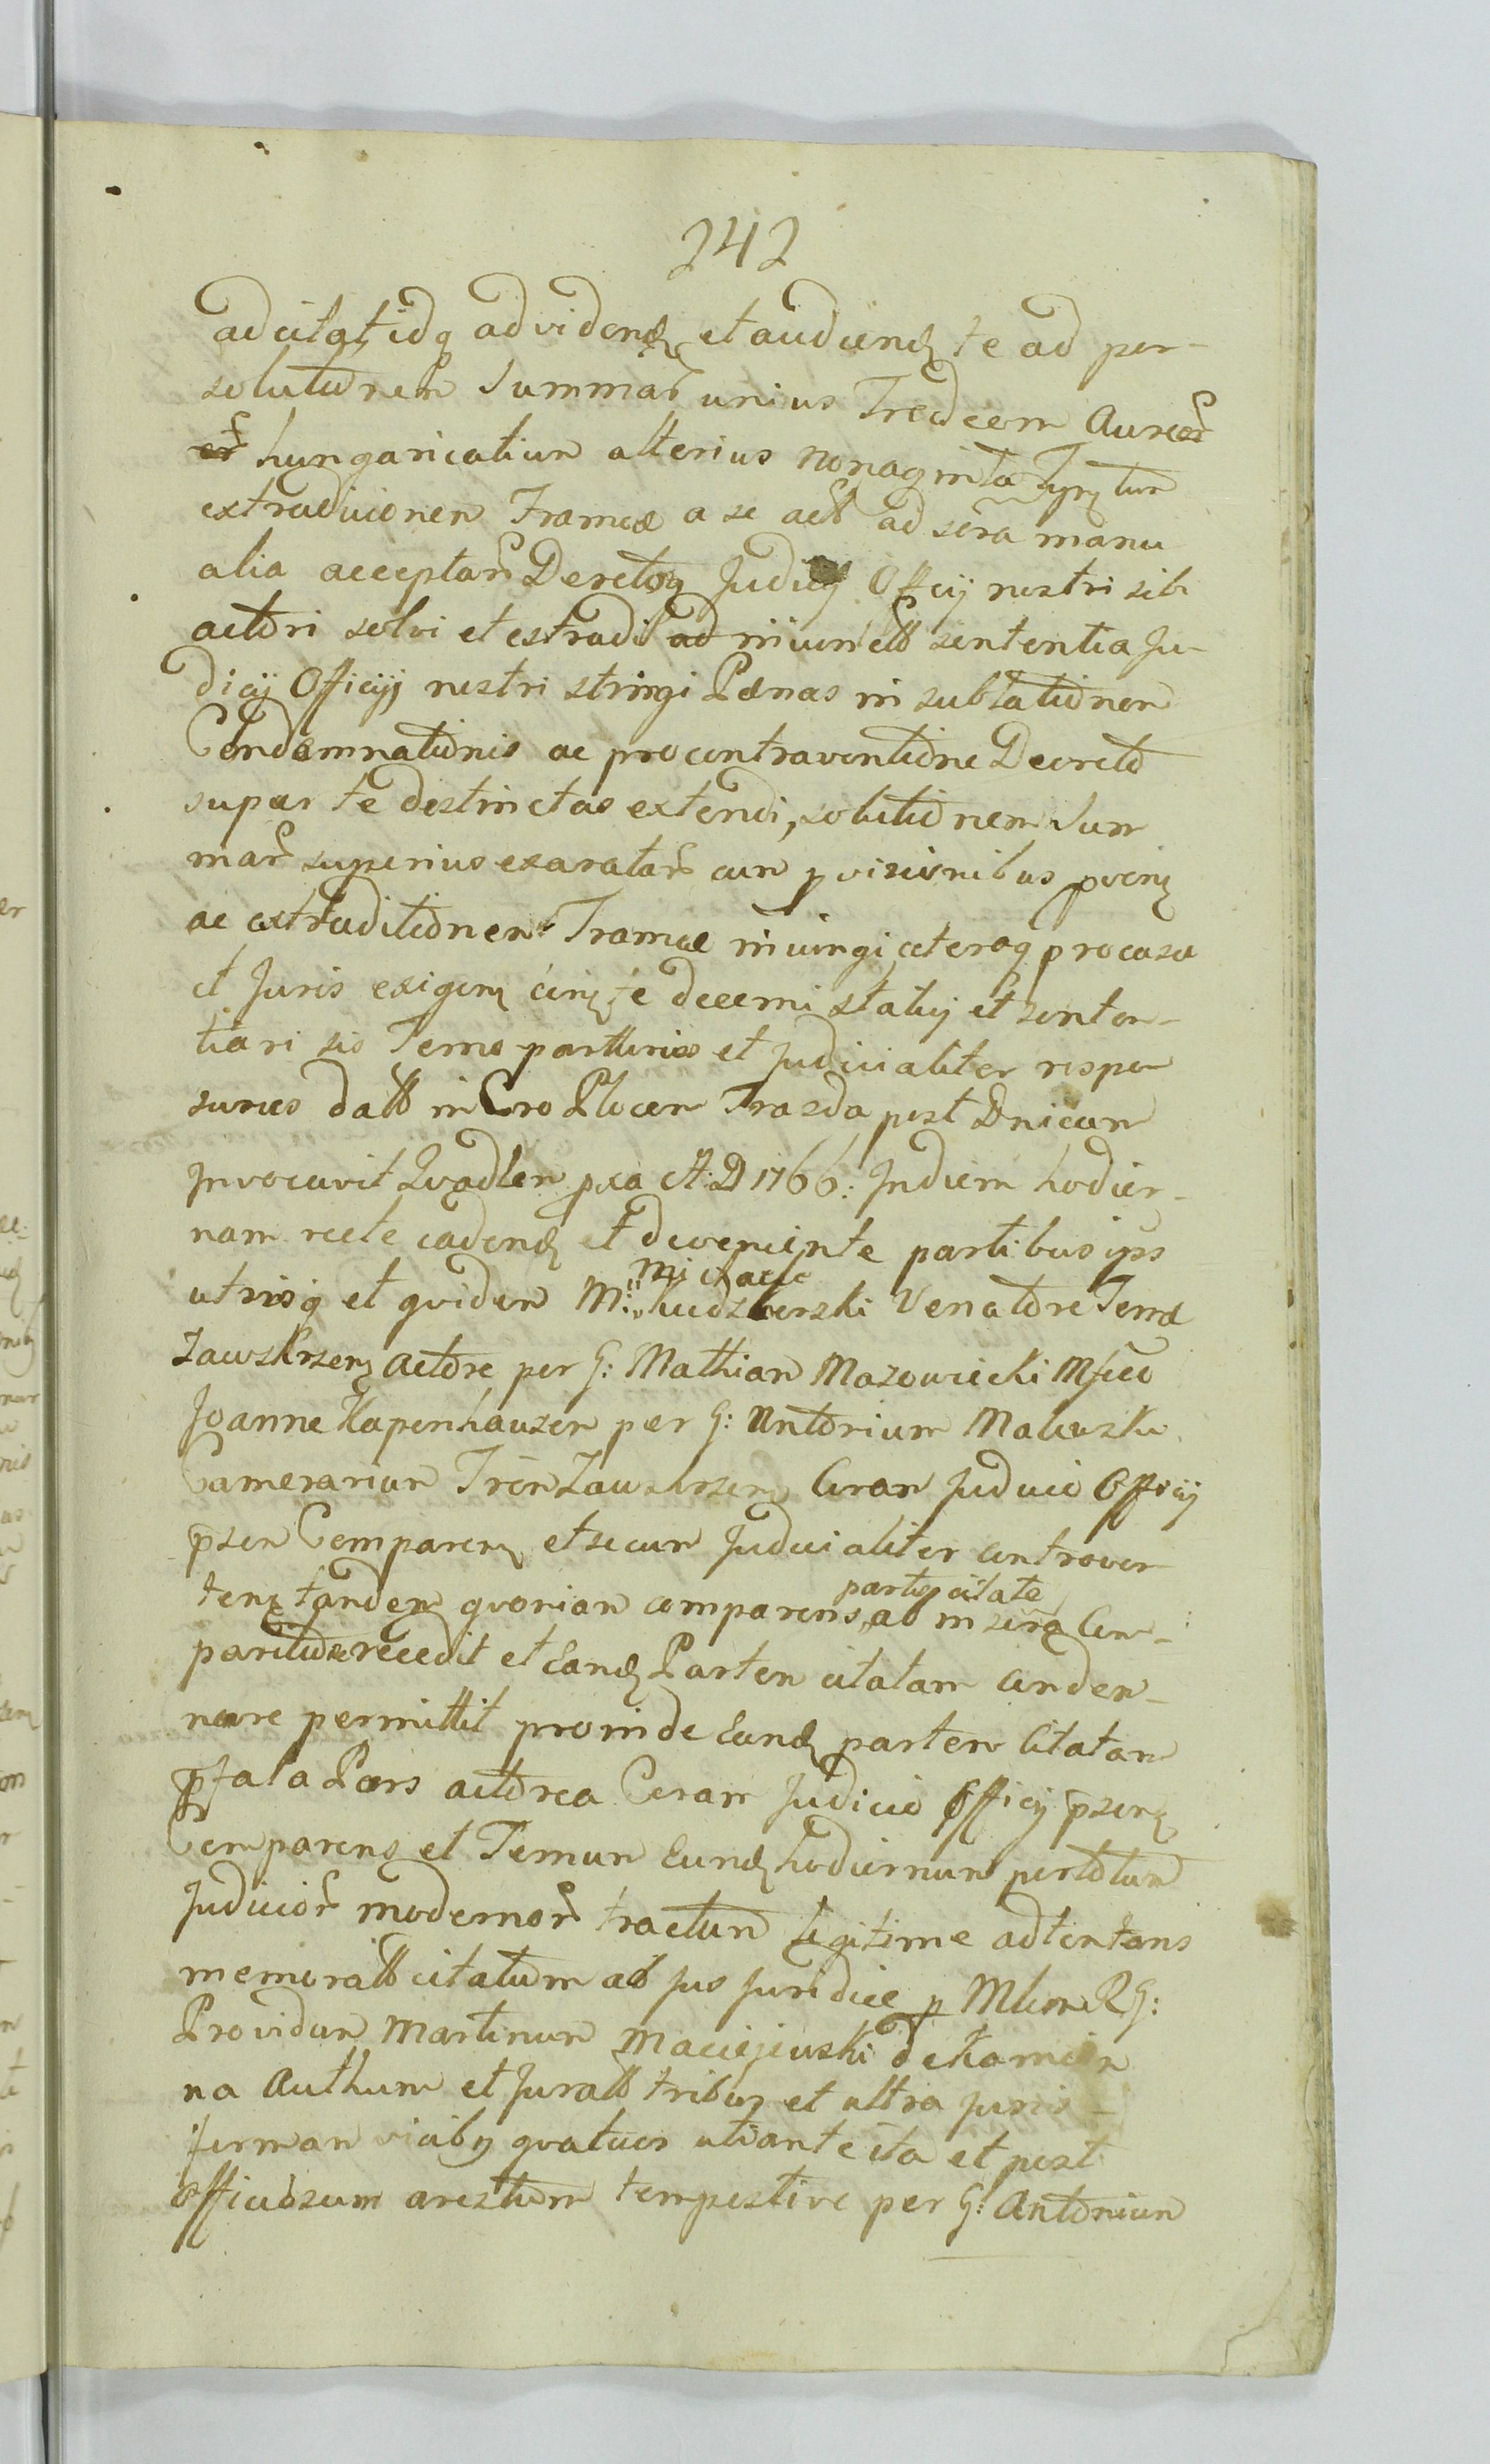 242
ad citat idq ad videndz et audiendz te ad per-
solutionem Summar unius Tredecem Aureor
er hungaricalium alterius nonaginta Tynf tum
extradicionem Frameae a se actt ad sera manu
alia acceptar Decretoq Judicij Officij nostri sibi
actori solvi et extradi ad iniunctt sententia Ju-
dicij Officij nostri stringi Paenas in sublationem
Condemnationis ac pro contraventione Decreto
super te destinctas extendi, solutionem Sum
mar superius exaratar cum pvisionibus proenz
ac extraditionem Frameae iniungi ceteraq pro casu
et Juris exigenz circz te decerni statuj et senten-
tiari sis Terms partturus et Judicialiter respon
surus datt in Cro Plocen Trasda post Dnicam
Invocavit Qvadlem pxa A: D 1766: In diem hodier-
nam recte cadendz et deveniente partibus ips
utrisq et qvidem M: Michaele Ludzberski Venatore Terrae
Zawskrzenz Actore per G: Mathian Mazowiecki Mfico
Joanne Kapenhauzen per G: Antonium Malewski
Camerarium Tren Zawskrzenz Coram Judicio Officij
pzen Comparenz et secum Judicialiter controver
tenz tandem qvoniam comparens parte citate ab inzera Com-
paritione recedit et Eandz Partem citatam Condem-
nare permittit proinde Eandz partem Citatam
pfata Pars actorea Coram Judicio Officij pzenz
Comparens et Ternum Eundz hodiernum pertotum
Judicior modernor tractum legitime adtentans
memoratt citatum ad jus Juridice p Mlem RG:
Providum Martinum Maciejewski de Kamion
na Authum et Juratt tribus et ultra Juris-
firman vicibz qvatuor utiante ita et post
officiosum arestum tempestive per G: Antonium